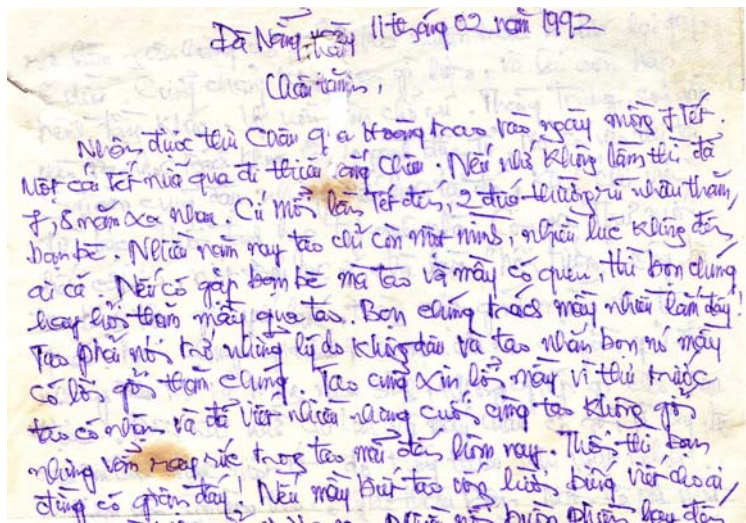 Đà Nẵng, ngày 11 tháng 02 năm 1992
Châu thân,
Nhận được thư Châu qua Hoàng trao vào ngày mồng 7 Tết.
Một cái Tết nữa qua đi thiếu Châu. Nếu nhớ không lầm thì đã
7, 8 năm xa nhau. Cứ mỗi lần Tết đến, 2 đứa thường rủ nhau thăm
bạn bè. Nhiều năm nay tao chỉ còn một mình, nhiều lúc không đến
ai cả. Nếu có gặp bạn bè mà tao và mầy có quen, thì bọn chúng
hay hỏi thăm mầy qua tao. Bọn chúng trách mầy nhiều lắm đấy!
Tao phải nói trớ những lý do không đâu và tao nhắn bọn nó mầy
có lời gởi thăm chúng. Tao cũng xin lỗi mầy vì thư trước
tao có nhận và đã viết nhưng cuối cùng tao không gởi
nhưng vẫn rức trong tao mãi đến hôm nay. Thôi thì bạn
đừng có giận đấy! Nếu mầy biết tao vốn lười biếng viết cho ai,